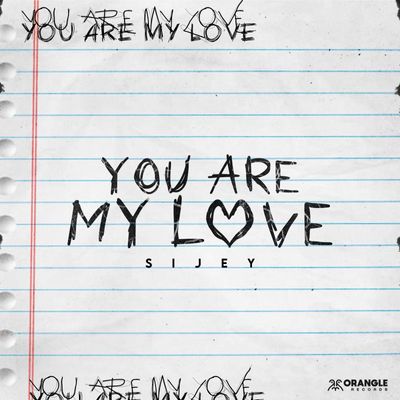 YOU ARE MY LOVE
YOU ARE MY LOVE
YOU ARE
MY LOVE
SIJEY
YOU ARE MY LOVE
YOU ARE MY LOVE
ORANGLE
RECORDS